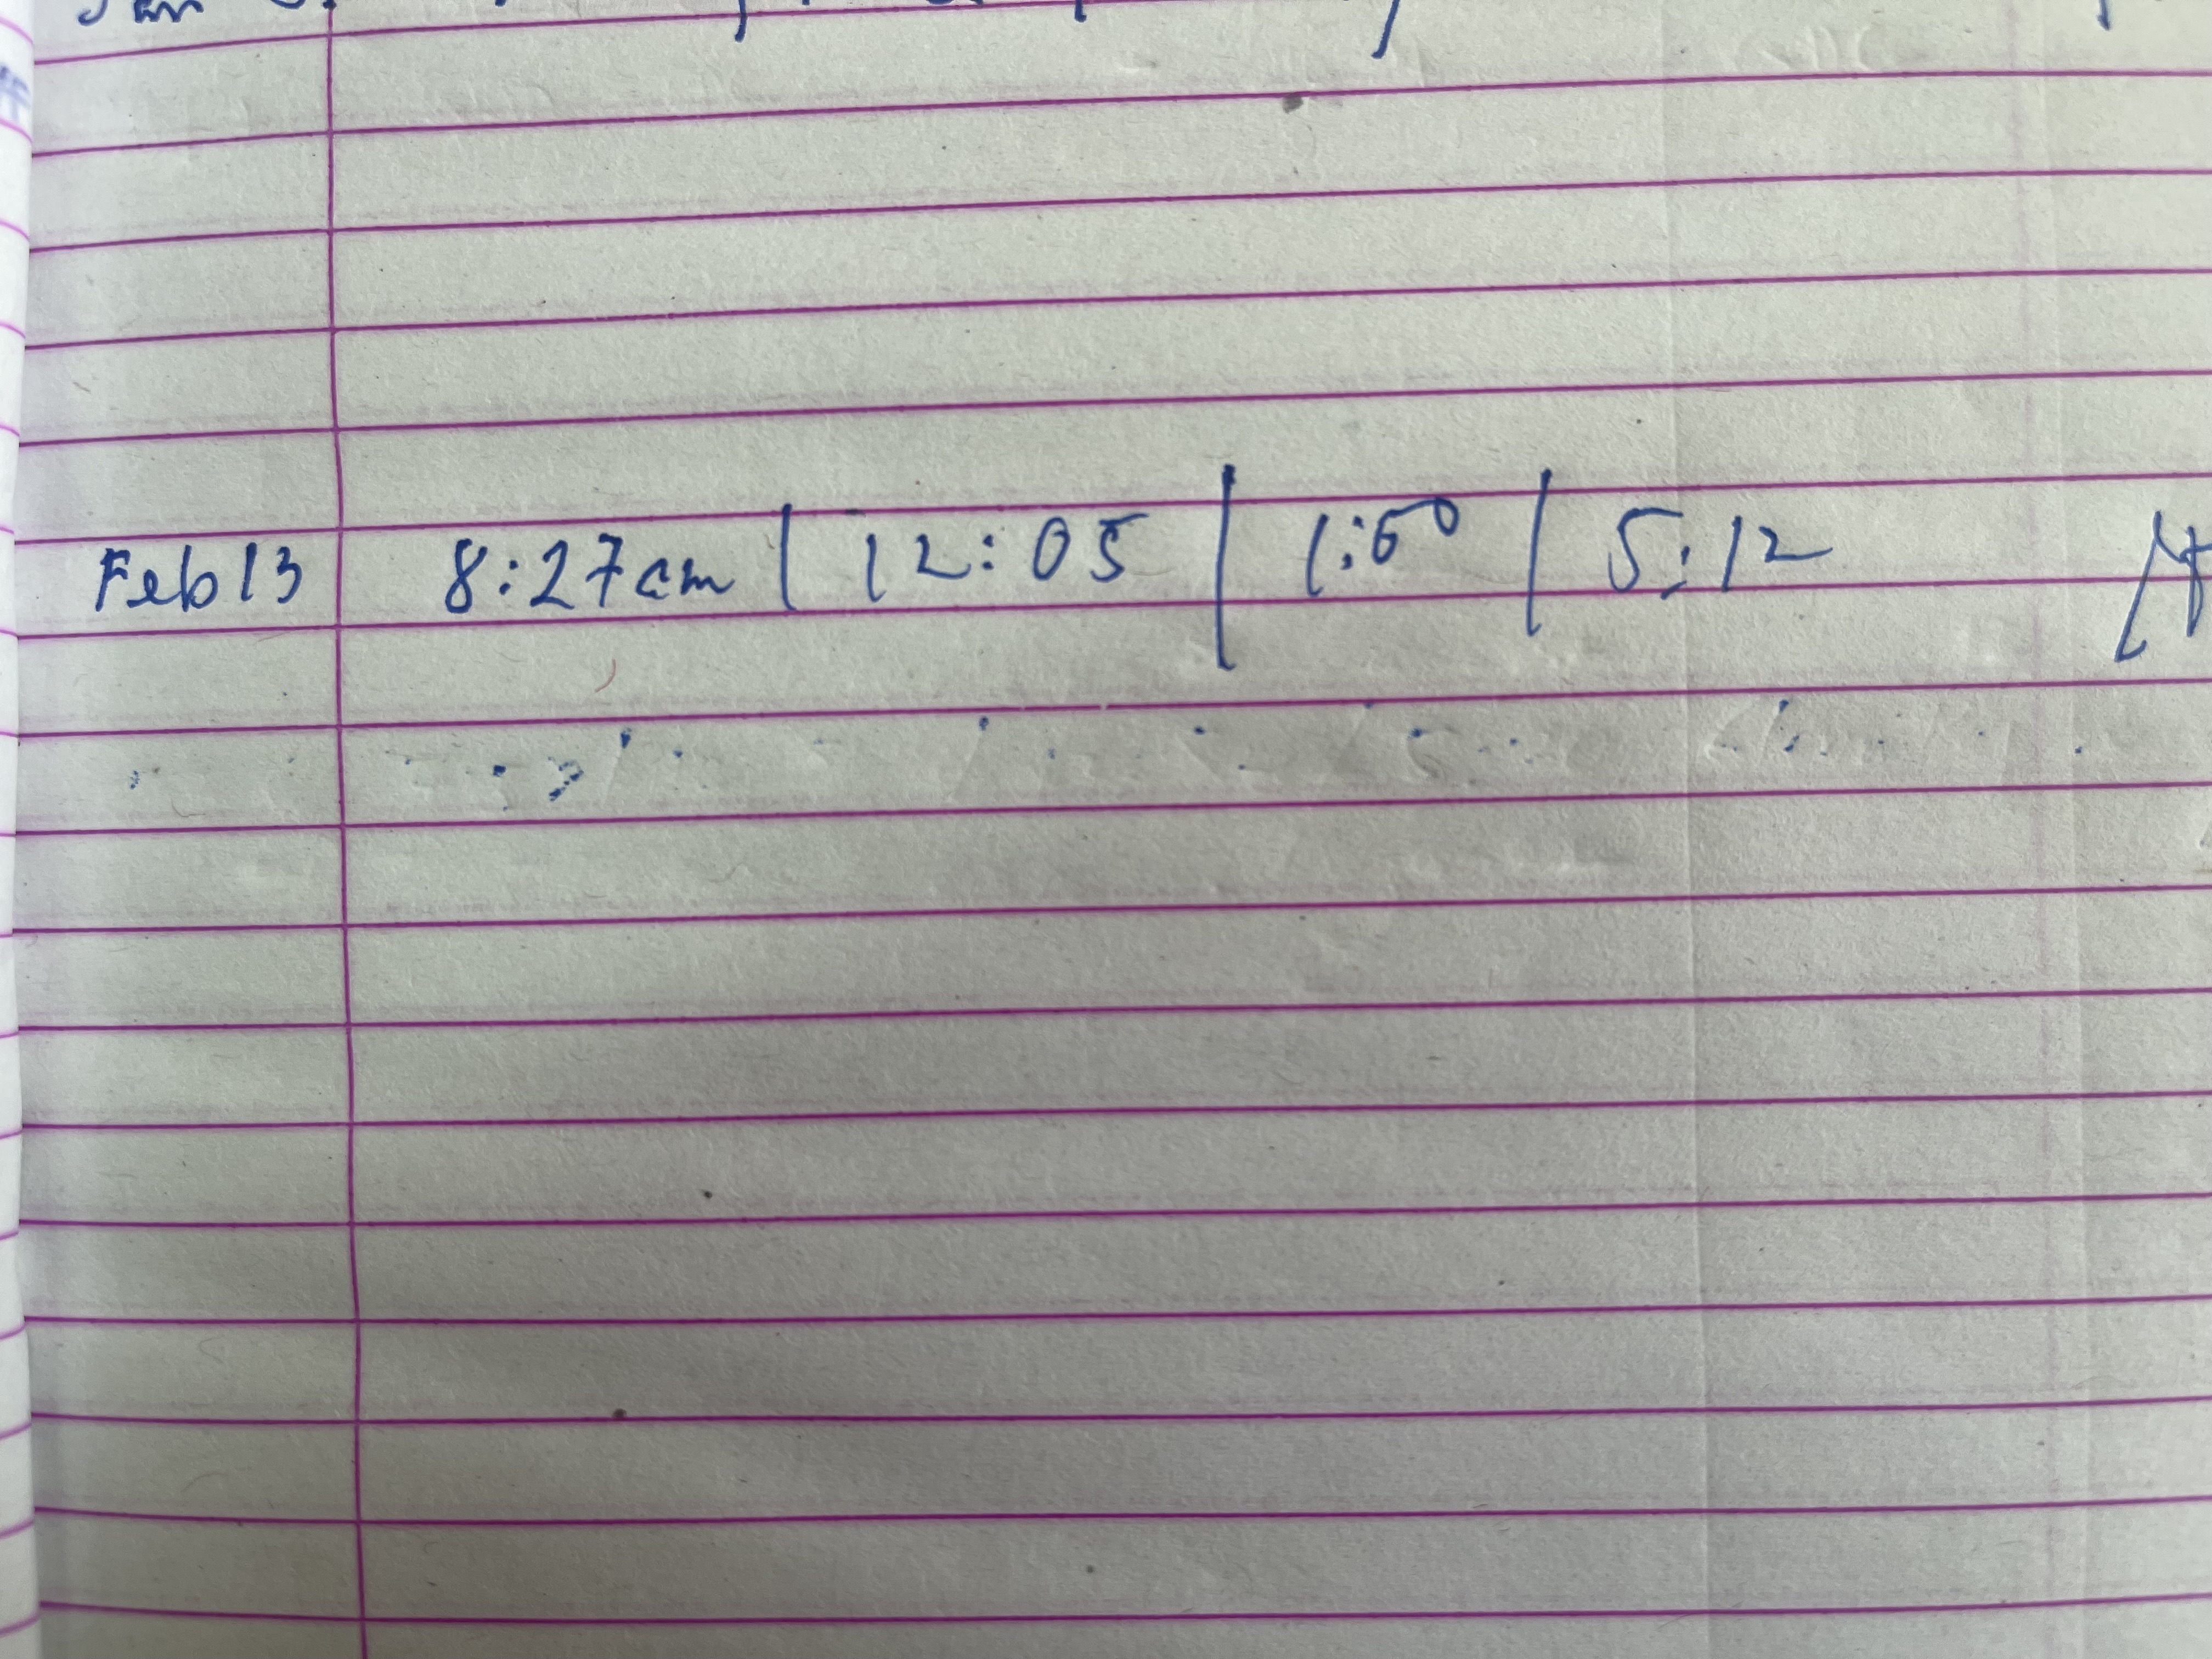 Feb 13 8:27am | 12:05 | 1:50 | 5:12